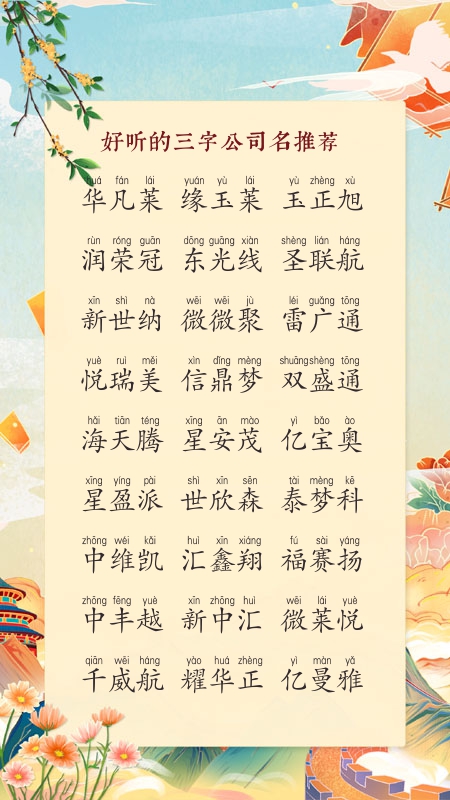 好听的三字公司名推荐
huá fán lái yuán yù lái yù zhèng xù
华凡莱 缘玉莱 玉正旭
rùn róng guān dōng guāng xiàn shèng lián háng
润荣冠 东光线 圣联航
xīn shì nà wēi wēi jù léi guǎng tōng
新世纳 微微聚 雷广通
yuè ruì měi xìn dǐng mèng shuāng shèng tōng
悦瑞美 信鼎梦 双盛通
hǎi tiān téng xīng ān mào yì bǎo ào
海天腾 星安茂 亿宝奥
xīng yíng pài shì xīn sēn tài mèng kē
星盈派 世欣森 泰梦科
zhōng wéi kǎi huì xīn xiáng fú sài yáng
中维凯 汇鑫翔 福赛扬
zhōng fēng yuè xīn zhōng huì wēi lái yuè
中丰越 新中汇 微莱悦
qiān wēi háng yào huá zhèng yì màn yǎ
千威航 耀华正 亿曼雅